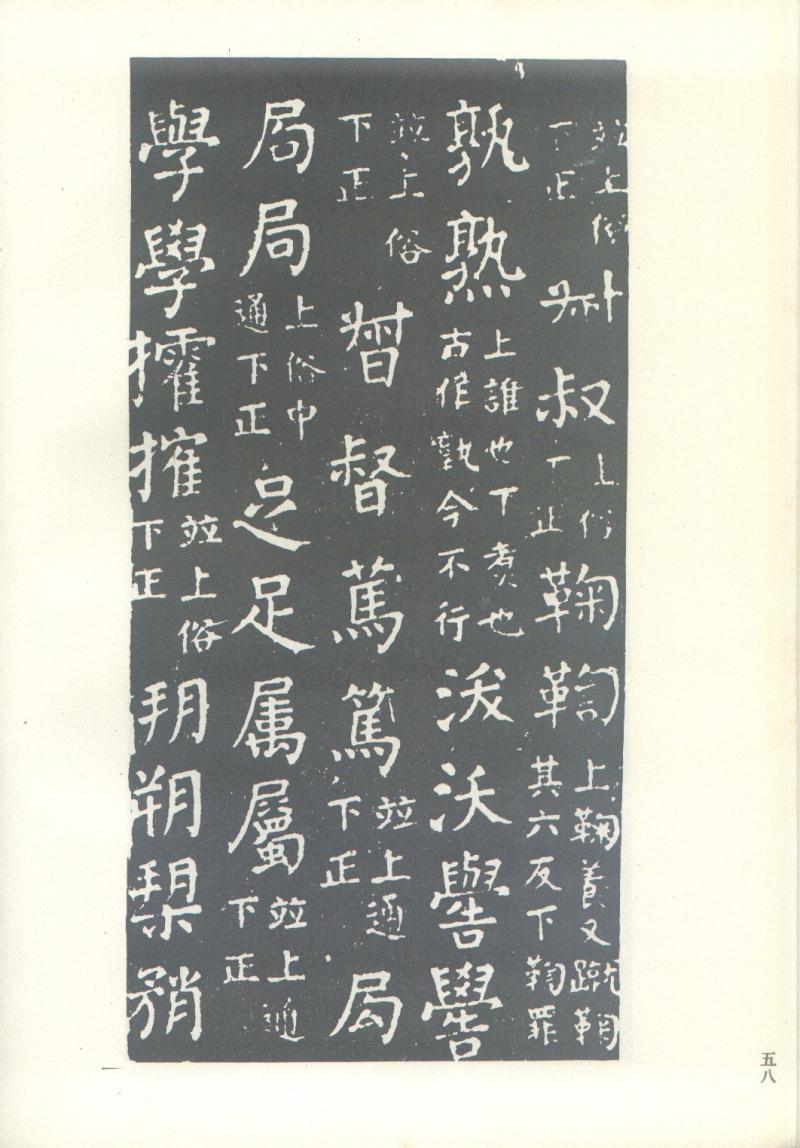 並上俗下正 叔 上俗下正 鞠 鞫 上鞠養又蹴鞠其六反下鞫罪
孰 熟 上誰也下煮也古作孰今不行 沃 嚳 嚳
並上俗下正 督 篤 篤 並上通下正 局
局 局 上俗中通下正 足 足 属 屬 並上通下正
學 學 㩁 搉 並上俗下正 朔 槊 矟
五八